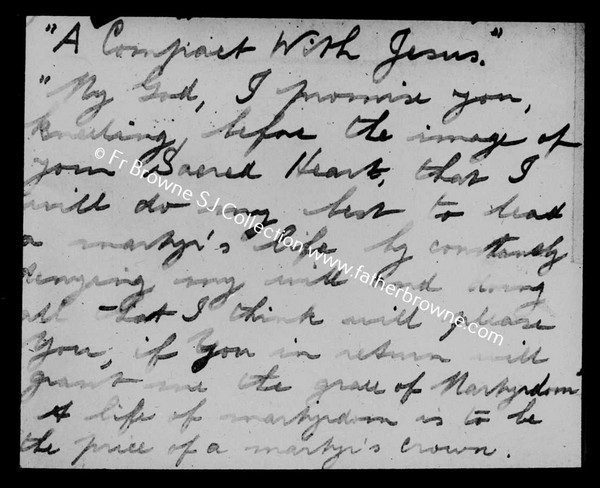 "A Compact With Jesus."
"My God, I promise you,
kneeling before the image of
your Sacred Heart, that I
will do my best to lead
a martyr's life by constantly
denying my will and doing
all that I think will please
You, if You in return will
grant me the grace of Martyrdom"
A life of martyrdom is to be
the price of a martyr's crown.
© Fr Browne SJ Collection, www.fatherbrowne.com